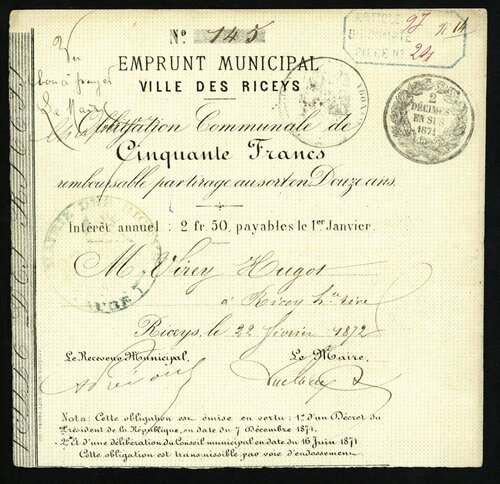 Nº 145
ARTICLE 97
DU COMPTE
PIÈCE Nº 24
Vu
bon à payer
Le Maire
EMPRUNT MUNICIPAL
VILLE DES RICEYS
2
DÉCIMES
EN SUS
1871
Obligation Communale de
Cinquante Francs
remboursable par tirage au sort en Douze ans.
Intérêt annuel : 2 fr. 50, payables le 1er Janvier.
M. Virey Hugot
à Ricey hte rive
Riceys, le 22 février 1872
Le Receveur Municipal, Le Maire,
Nota : Cette obligation est émise en vertu : 1º d'un Décret du
Président de la République, en date du 7 Décembre 1871.
- 2º Et d'une délibération du Conseil municipal en date du 16 Juin 1871
Cette obligation est transmissible par voie d'endossement.